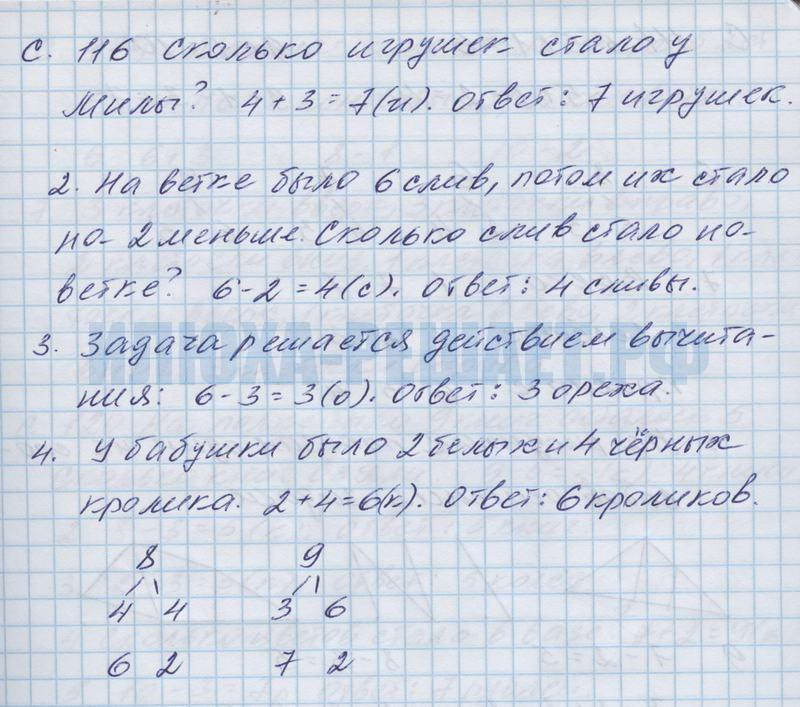 с. 116 Сколько игрушек стало у
Милы? 4 + 3 = 7 (и). Ответ: 7 игрушек.
2. На ветке было 6 слив, потом их стало
на 2 меньше. Сколько слив стало на
ветке? 6 - 2 = 4 (с). Ответ: 4 сливы.
ИЛЮХА-РЕШАЕТ.РФ
3. Задача решается действием вычита-
ния: 6 - 3 = 3 (о). Ответ: 3 ореха.
4. У бабушки было 2 белых и 4 чёрных
кролика. 2 + 4 = 6 (к). Ответ: 6 кроликов.
8 9
4 4 3 6
6 2 7 2